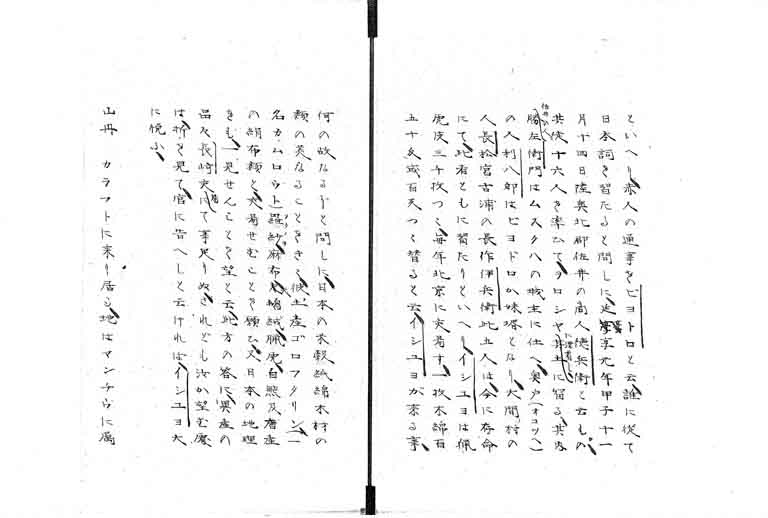 といへり赤人の通事をビヨトロと云誰に従て
日本詞を習たると問しに延享元年甲子十一
月十四日陸奥北郡佐井の商人徳兵衛と云もの
共徒十六人を率ひてヲロシヤ其土に留る其内
勝左衛門はムスクハの城主に仕へ奥戸(オコツヘ)
の人利八郎はビヨドロか妹壻となり大間村の
人長松宮古浦の長作伊兵衛此五人は今に存命
にて此者ともに習たりといへりイシユヨは
虎皮三千枚つゝ毎年北京に交易す一枚木綿百
五十反或百反つゝ替ると云イシユヨが来る事
何の故なるやと問しに日本の米穀紙綿木材の
類の美なることをきく彼土産ゴロフクリン(一
名カムロウト)羅紗麻布鼠皮白熊及唐産
の絹布類と交易せむことを願ひ又日本の地理
をも一見せんことを望と云此方の答に異産の
品々長崎交易にて事足りぬされども汝か望む處
は折を見て官に告へしと云ければイシユヨ大
に悦ふ
山丹 カラフトに来り居る地はマンチウに属